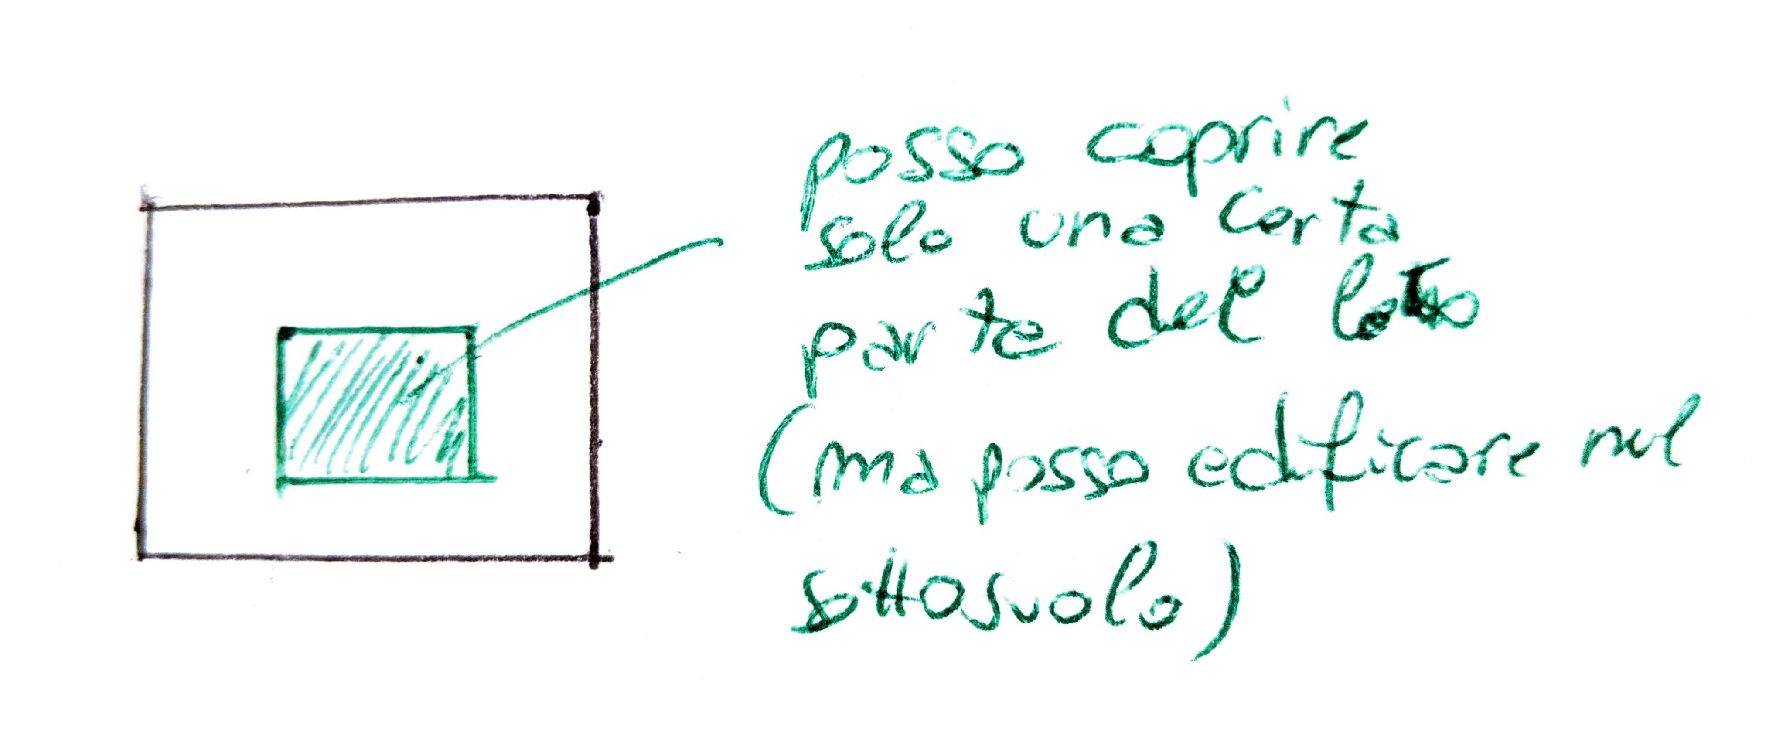 posso coprire
solo una certa
parte del lotto
(ma posso edificare nel
sottosuolo)